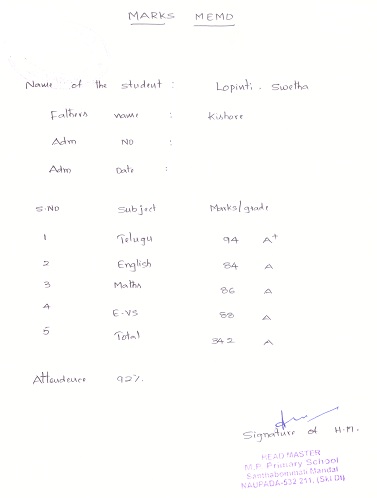 MARKS MEMO
Name of the student : Lopinti . Swetha
Fathers name : Kishore
Adm NO :
Adm Date :
S.NO Subject Marks/grade
1 Telugu 94 A+
2 English 84 A
3 Maths 86 A
4 E-VS 88 A
5 Total 342 A
Attendence 92%.
Signature of H.M.
HEAD MASTER
M.P. Primary School
Santhabommali Mandal
NAUPADA-532 211, (Skl.Dt)